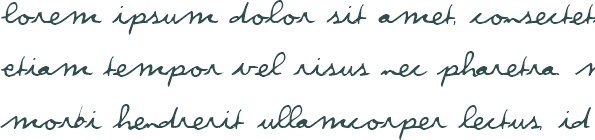 lorem ipsum dolor sit amet, consectet
etiam tempor vel risus nec pharetra.
morbi hendrerit ullamcorper lectus, id